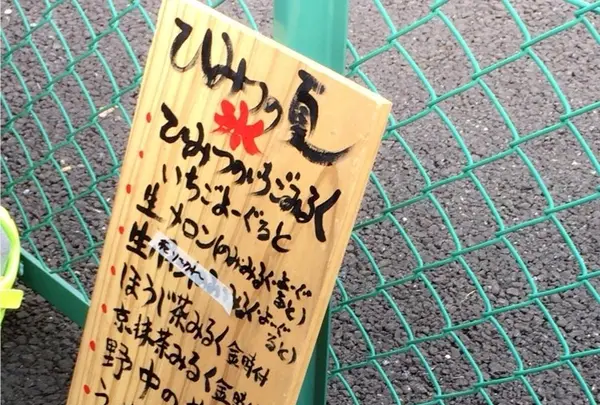 ひみつの夏
氷
ひみつのいちごみるく
いちごよーぐると
生メロン(のみみるく・よーぐると)
生
ほうじ茶みるく 金時付
京抹茶みるく 金時
野中の
う